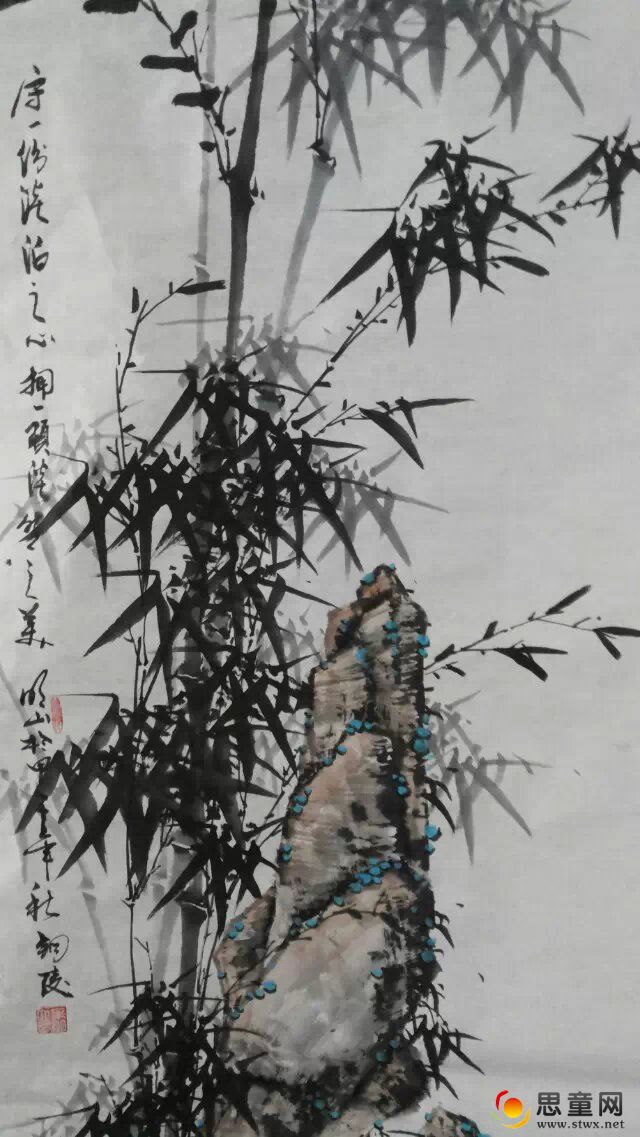 守一份淡泊之心拥一颗淡然之美 明山于甲午年秋铜陵
思童网
www.stwx.net